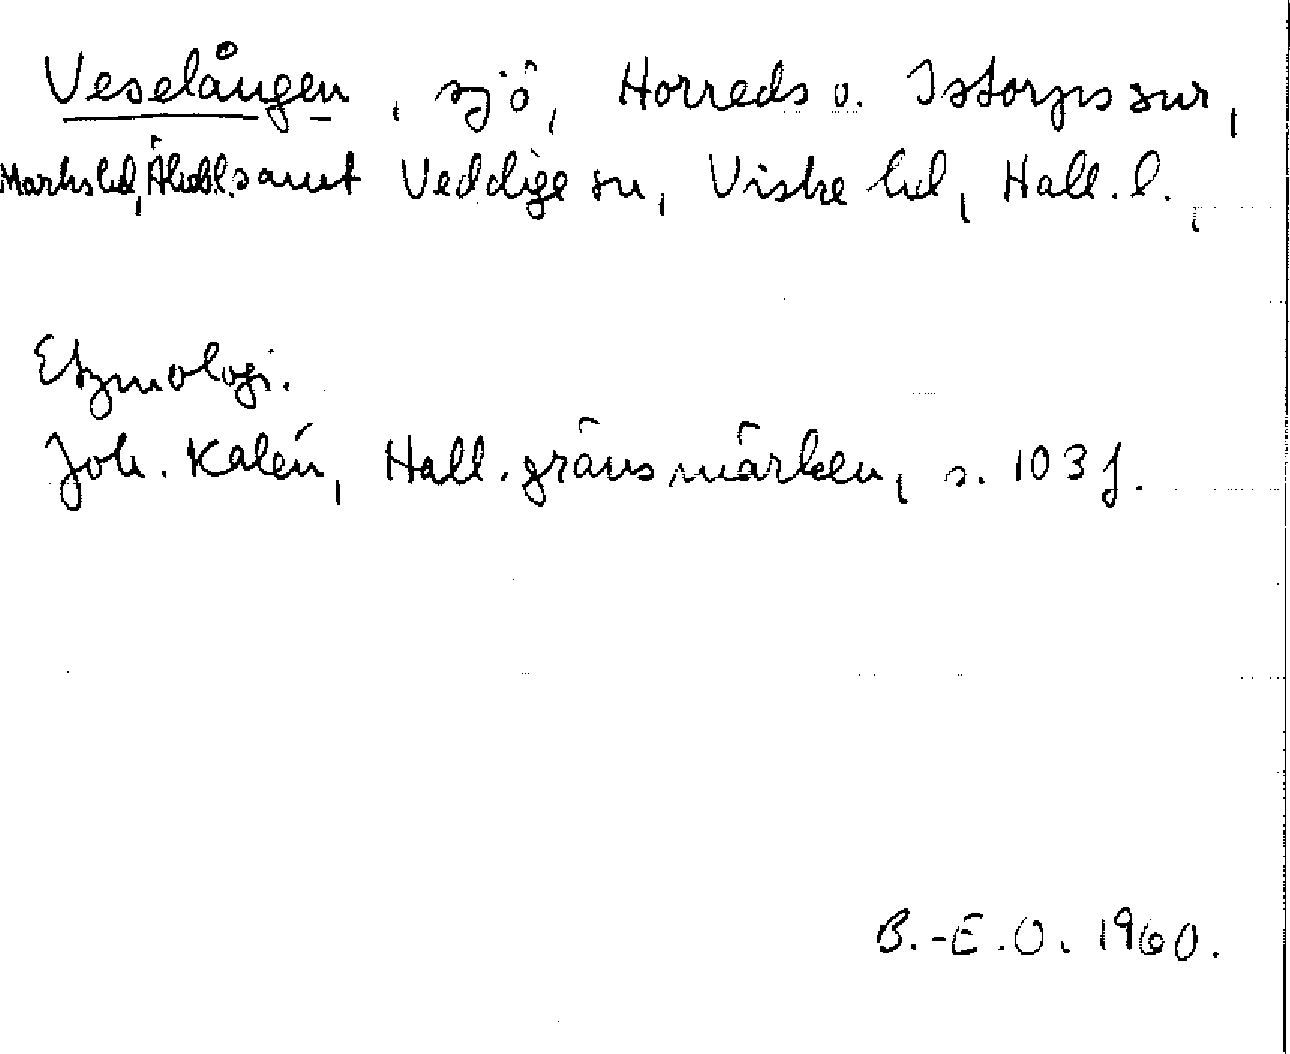 Veselången, sjö, Horreds o. Istorps snr,
Marks hd, Älvsbl. samt Veddige sn, Viske hd, Hall. l.,
Etymologi.
Joh. Kalén, Hall. gränsmärken, s. 103 f.
B.-E.O. 1960.